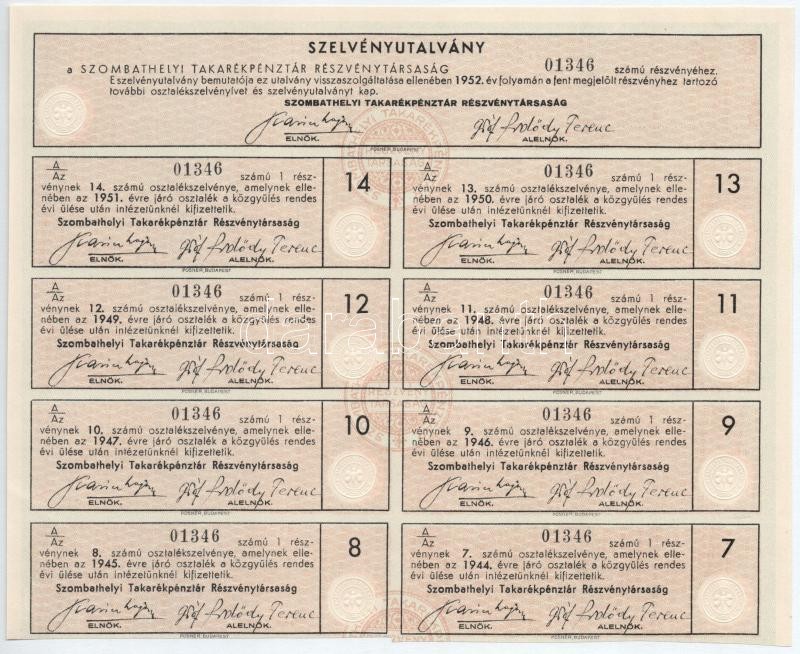 SZELVÉNYUTALVÁNY
a SZOMBATHELYI TAKARÉKPÉNZTÁR RÉSZVÉNYTÁRSASÁG 01346 számú részvényéhez.
E szelvényutalvány bemutatója ez utalvány visszaszolgáltatása ellenében 1952. év folyamán a fent megjelölt részvényhez tartozó
további osztalékszelvényívet és szelvényutalványt kap.
SZOMBATHELYI TAKARÉKPÉNZTÁR RÉSZVÉNYTÁRSASÁG
gróf Erdődy Ferenc
ELNÖK. ALELNÖK.
POSNER, BUDAPEST
A/Az 01346 számú 1 rész-
vénynek 14. számú osztalékszelvénye, amelynek elle-
nében az 1951. évre járó osztalék a közgyűlés rendes
évi ülése után intézetünknél kifizettetik.
Szombathelyi Takarékpénztár Részvénytársaság
gróf Erdődy Ferenc
ELNÖK. ALELNÖK.
POSNER, BUDAPEST
14
A/Az 01346 számú 1 rész-
vénynek 13. számú osztalékszelvénye, amelynek elle-
nében az 1950. évre járó osztalék a közgyűlés rendes
évi ülése után intézetünknél kifizettetik.
Szombathelyi Takarékpénztár Részvénytársaság
gróf Erdődy Ferenc
ELNÖK. ALELNÖK.
POSNER, BUDAPEST
13
A/Az 01346 számú 1 rész-
vénynek 12. számú osztalékszelvénye, amelynek elle-
nében az 1949. évre járó osztalék a közgyűlés rendes
évi ülése után intézetünknél kifizettetik.
Szombathelyi Takarékpénztár Részvénytársaság
gróf Erdődy Ferenc
ELNÖK. ALELNÖK.
POSNER, BUDAPEST
12
A/Az 01346 számú 1 rész-
vénynek 11. számú osztalékszelvénye, amelynek elle-
nében az 1948. évre járó osztalék a közgyűlés rendes
évi ülése után intézetünknél kifizettetik.
Szombathelyi Takarékpénztár Részvénytársaság
gróf Erdődy Ferenc
ELNÖK. ALELNÖK.
POSNER, BUDAPEST
11
A/Az 01346 számú 1 rész-
vénynek 10. számú osztalékszelvénye, amelynek elle-
nében az 1947. évre járó osztalék a közgyűlés rendes
évi ülése után intézetünknél kifizettetik.
Szombathelyi Takarékpénztár Részvénytársaság
gróf Erdődy Ferenc
ELNÖK. ALELNÖK.
POSNER, BUDAPEST
10
A/Az 01346 számú 1 rész-
vénynek 9. számú osztalékszelvénye, amelynek elle-
nében az 1946. évre járó osztalék a közgyűlés rendes
évi ülése után intézetünknél kifizettetik.
Szombathelyi Takarékpénztár Részvénytársaság
gróf Erdődy Ferenc
ELNÖK. ALELNÖK.
POSNER, BUDAPEST
9
A/Az 01346 számú 1 rész-
vénynek 8. számú osztalékszelvénye, amelynek elle-
nében az 1945. évre járó osztalék a közgyűlés rendes
évi ülése után intézetünknél kifizettetik.
Szombathelyi Takarékpénztár Részvénytársaság
gróf Erdődy Ferenc
ELNÖK. ALELNÖK.
POSNER, BUDAPEST
8
A/Az 01346 számú 1 rész-
vénynek 7. számú osztalékszelvénye, amelynek elle-
nében az 1944. évre járó osztalék a közgyűlés rendes
évi ülése után intézetünknél kifizettetik.
Szombathelyi Takarékpénztár Részvénytársaság
gróf Erdődy Ferenc
ELNÖK. ALELNÖK.
POSNER, BUDAPEST
7